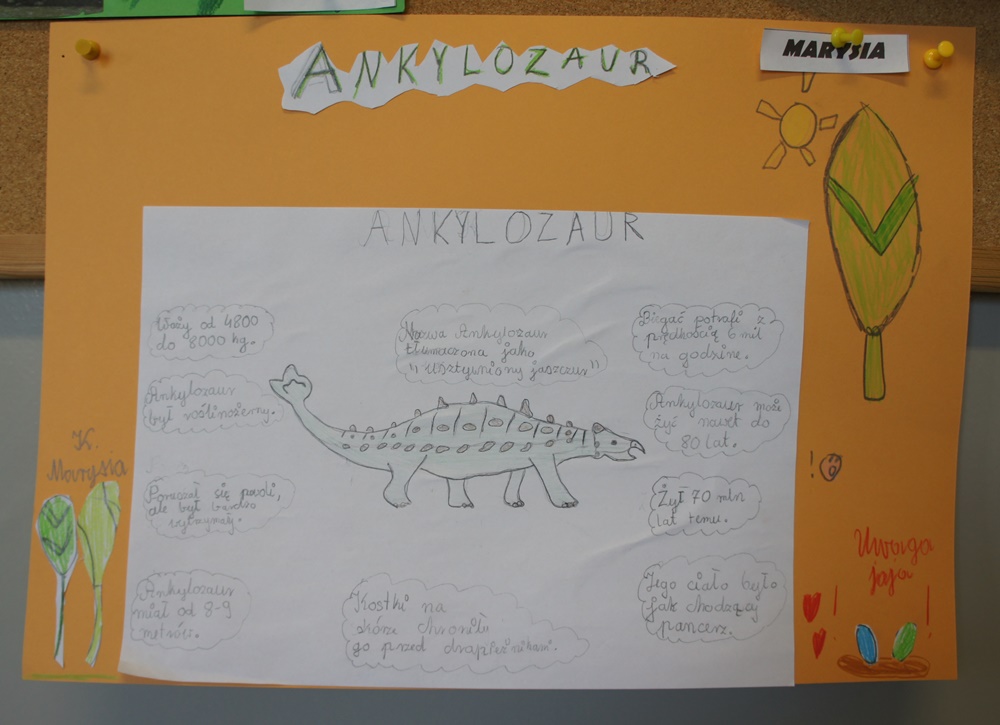 ANKYLOZAUR
MARYSIA
ANKYLOZAUR
Waży od 4800
do 8000 kg.
Nazwa Ankylozaur
tłumaczona jako
"Usztywniony jaszczur"
Biegać potrafi z
prędkością 6 mil
na godzinę.
Ankylozaur
był roślinożerny.
Ankylozaur może
żyć nawet do
80 lat.
K.
Marysia
Poruszał się powoli,
ale był bardzo
wytrzymały.
Żył 70 mln
lat temu.
!
Ankylozaur
miał od 8-9
metrów.
Kostki na
skórze chroniły
go przed drapieżnikami.
Jego ciało było
jak chodzący
pancerz.
Uwaga
jaja
! !